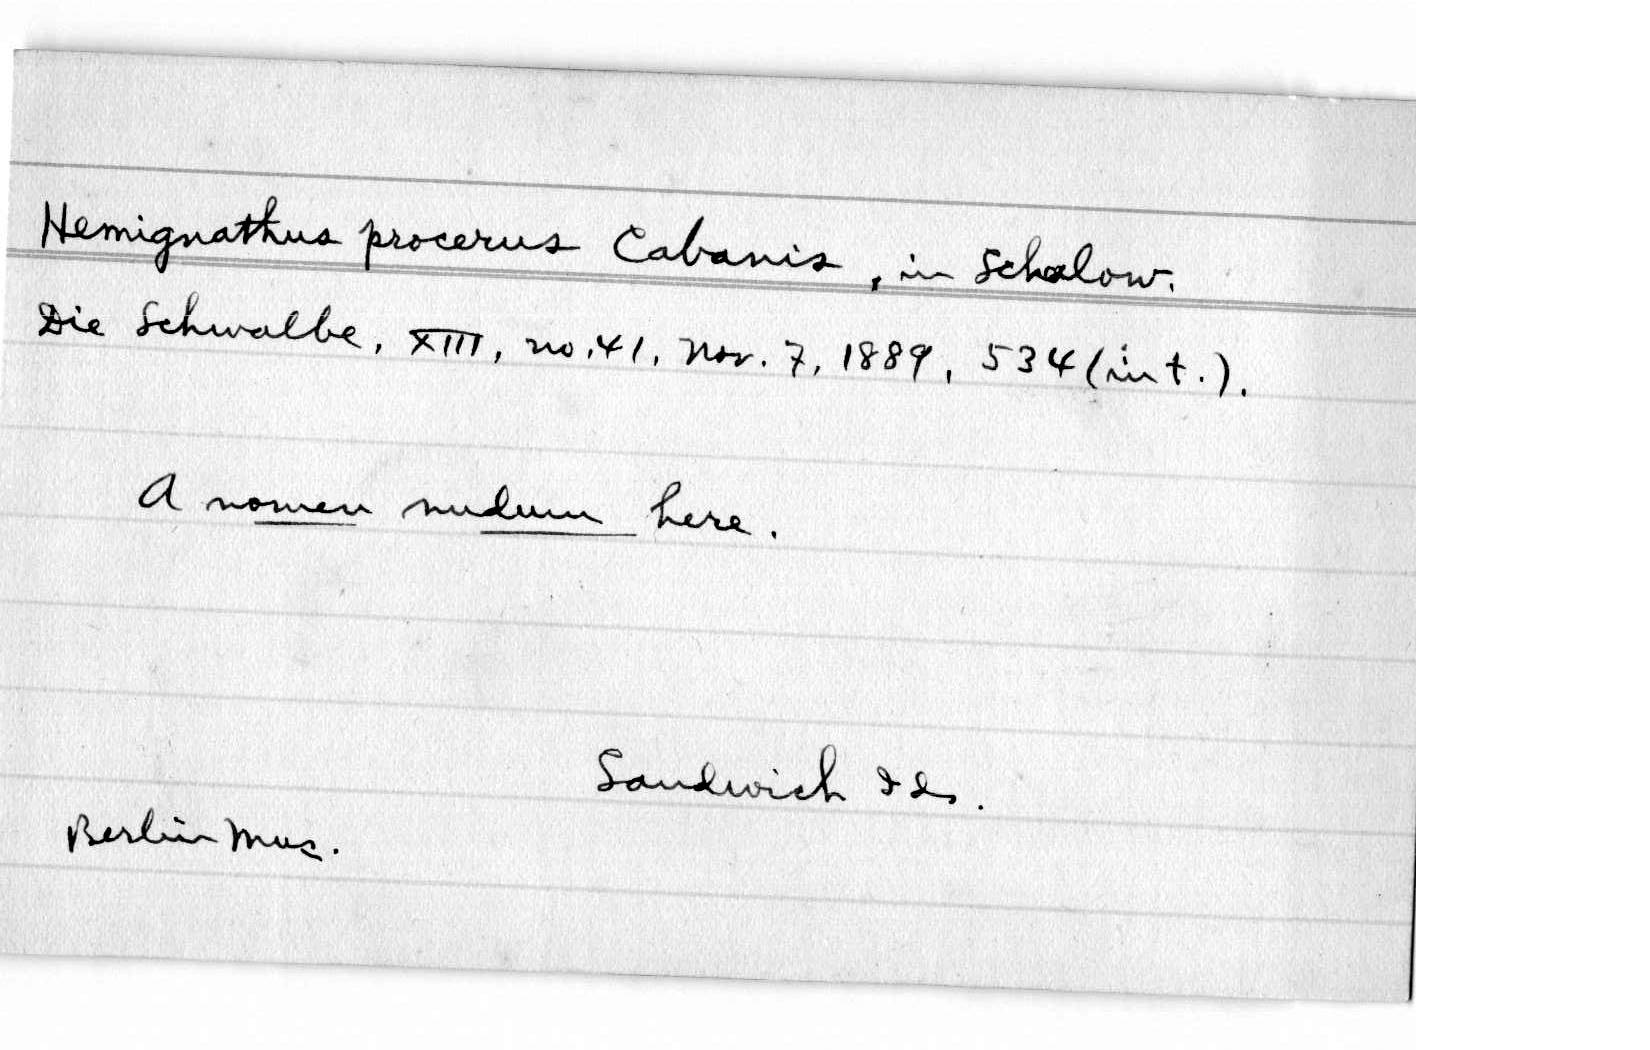 Hemignathus procerus Cabanis, in Schalow.
Die Schwalbe, XIII, no. 41, Nov. 7, 1889, 534 (in t.).
A nomen nudum here.
Sandwich Ids.
Berlin Mus.